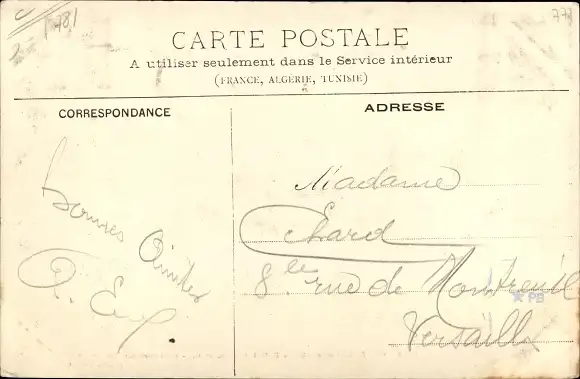 781
777
CARTE POSTALE
A utiliser seulement dans le Service intérieur
(FRANCE, ALGERIE, TUNISIE)
CORRESPONDANCE
Bonnes
Amitiés
ADRESSE
Madame
Chard
rue de Montreuil
Versailles
PB